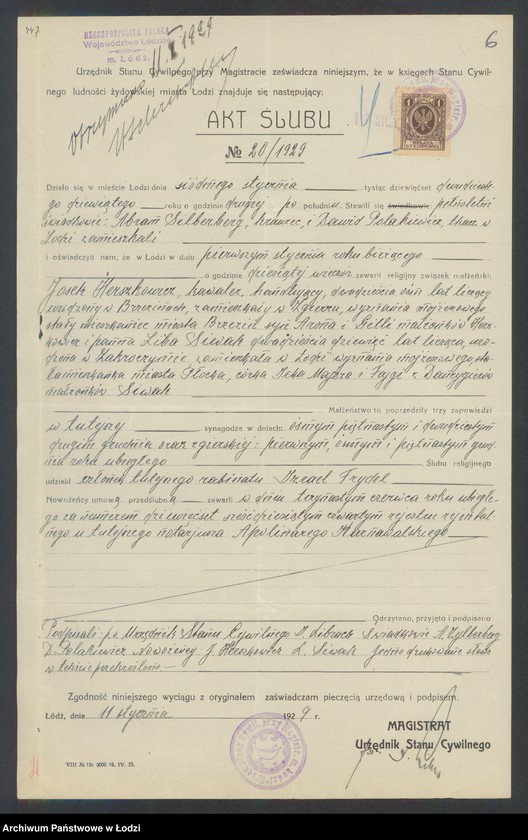 347
6
RZECZPOSPOLITA POLSKA
Województwo Łódzkie
m. Łódź.
11/I 1929
Otrzymałem
Urzędnik Stanu Cywilnego przy Magistracie zaświadcza niniejszym, że w księgach Stanu Cywil-
nego ludności żydowskiej miasta Łodzi znajduje się następujący:
AKT ŚLUBU
№ 20/1929
Działo się w mieście Łodzi dnia siódmego stycznia tysiąc dziewięćset dwudzieste-
go dziewiątego roku o godzinie drugiej po południu. Stawili się świadkowie: pełnoletni
świadkowie: Abram Silberberg, krawiec, i Dawid Polakiewicz, tkacz w
Łodzi zamieszkali
i oświadczyli nam, że w Łodzi w dniu pierwszym stycznia roku bieżącego
o godzinie dziesiątej wieczór zawarli religijny związek małżeński:
Josek Herszkowicz, kawaler, handlujący, dwadzieścia osiem lat liczący
urodzony w Brzezinach, zamieszkały w Zgierzu, wyznania mojżeszowego
stały mieszkaniec miasta Brzezin syn Arona i Gitli małżonków Hersz-
kowicz i panna Liba Siwak dwadzieścia dziewięć lat licząca, uro-
dzona w Zakroczymie zamieszkała w Łodzi wyznania mojżeszowego, sta-
ła mieszkanka miasta Płocka, córka Icka Majera i Fajgi z Dancygierów
małżonków Siwak
Małżeństwo to poprzedziły trzy zapowiedzi
w tutejszej synagodze w dniach: ósmym piętnastym i dwudziestym
drugim grudnia oraz zgierskiej: pierwszym, ósmym i piętnastym grud-
nia roku ubiegłego Ślubu religijnego
udzielił członek tutejszego rabinatu Izrael Frydel
Nowożeńcy umowę przedślubną zawarli w dniu trzynastym czerwca roku ubiegłe-
go za numerem dziewięćset sześćdziesiątym czwartym rejestru rejental-
nego u tutejszego notarjusza Apolinarego Karnawalskiego
Odczytano, przyjęto i podpisano
Podpisali: p.o. Urzędnik Stanu Cywilnego J. Librach Świadkowie A. Zylberberg
D. Polakiewicz Nowożeńcy J. Herszkowicz L. Siwak Jedno drukowane słowo
w tekście przekreślono.—
Zgodność niniejszego wyciągu z oryginałem zaświadczam pieczęcią urzędową i podpisem.
Łódź, dnia 11 stycznia 1929 r.
MAGISTRAT
Urzędnik Stanu Cywilnego
Archiwum Państwowe w Łodzi